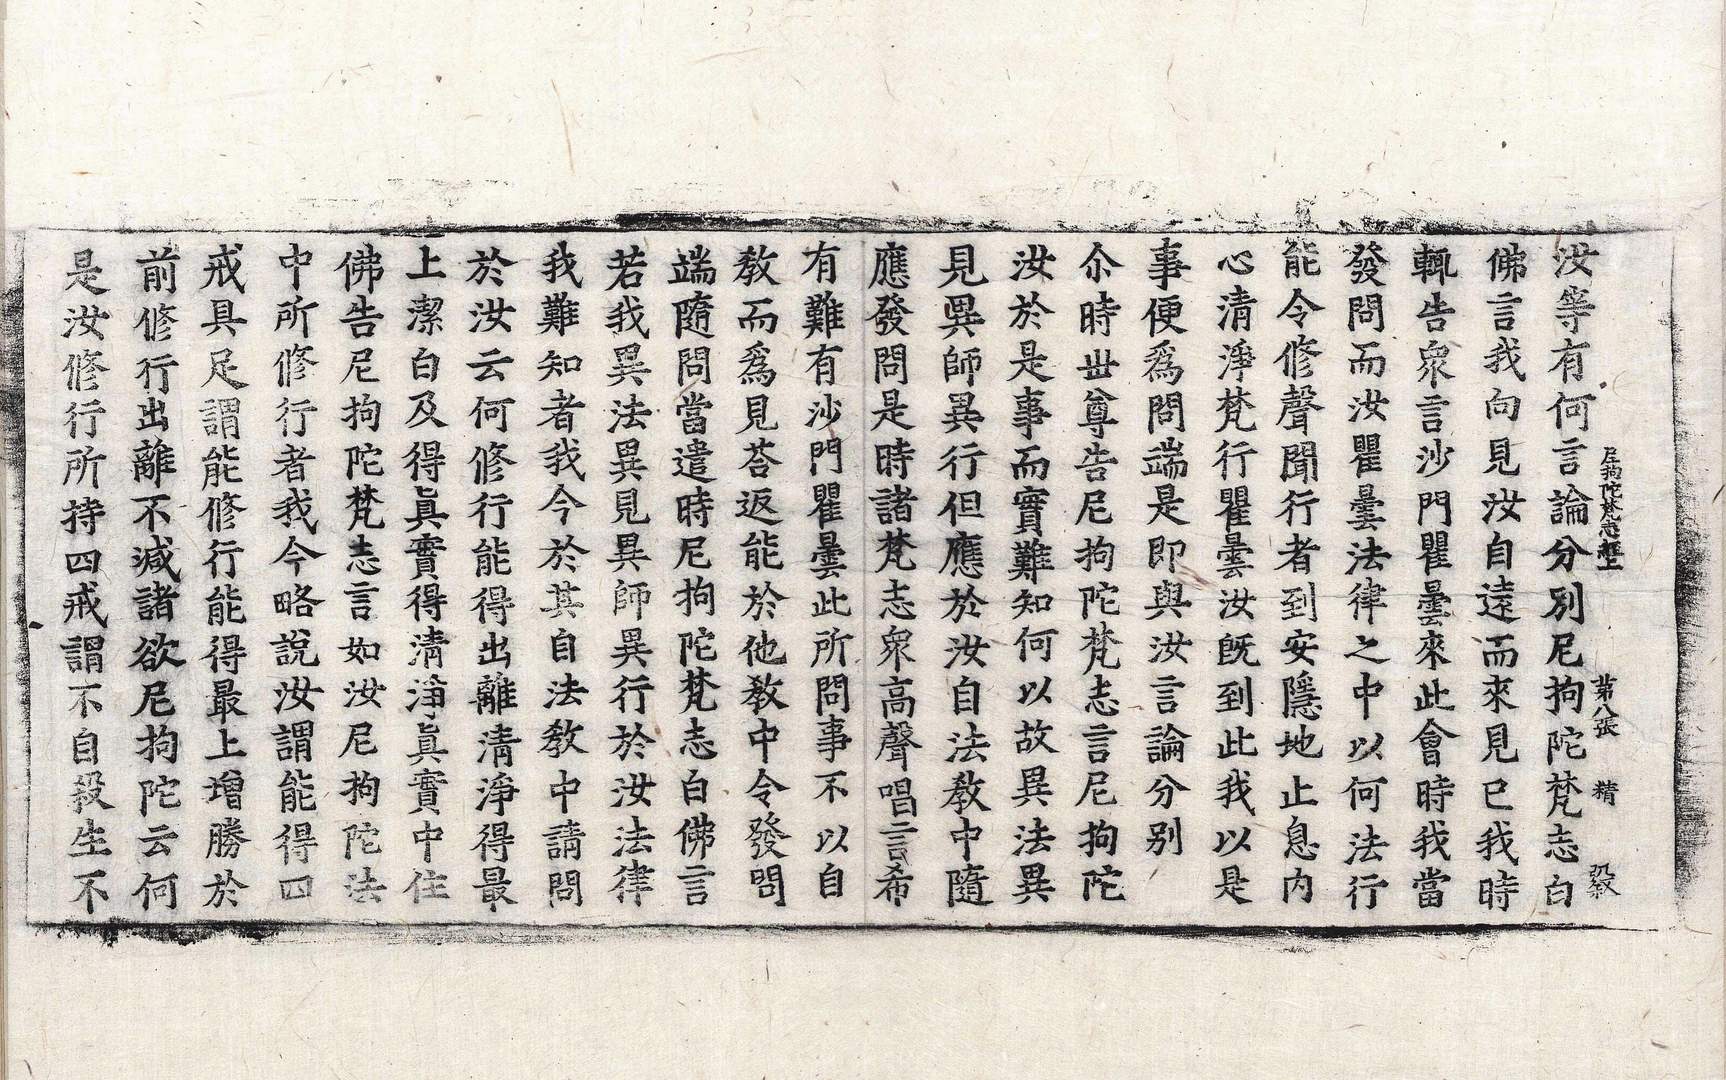 尼拘陀梵志經上　第八張　精
汝等有何言論分別尼拘陀梵志白
佛言我向見汝自遠而來見已我時
輒告衆言沙門瞿曇來此會時我當
發問而汝瞿曇法律之中以何法行
能令修聲聞行者到安隱地止息內
心清淨梵行瞿曇汝既到此我以是
事便爲問端是即與汝言論分別
尒時世尊告尼拘陀梵志言尼拘陀
汝於是事而實難知何以故異法異
見異師異行但應於汝自法教中隨
應發問是時諸梵志衆高聲唱言希
有難有沙門瞿曇此所問事不以自
教而爲見荅返能於他教中令發問
端隨問當遣時尼拘陀梵志白佛言
若我異法異見異師異行於汝法律
我難知者我今於其自法教中請問
於汝云何修行能得出離清淨得最
上潔白及得眞實得清淨眞實中住
佛告尼拘陀梵志言如汝尼拘陀法
中所修行者我今略說汝謂能得四
戒具足謂能修行能得最上增勝於
前修行出離不減諸欲尼拘陀云何
是汝修行所持四戒謂不自殺生不